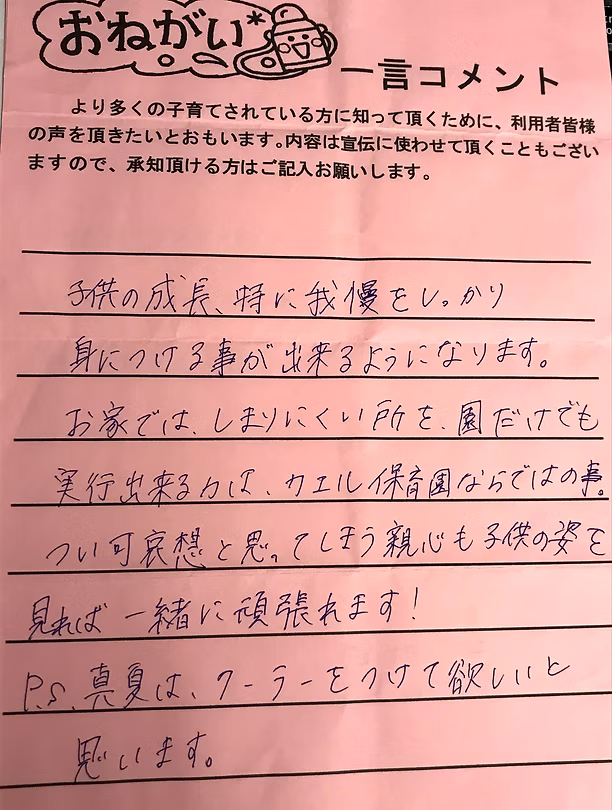 おねがい*
一言コメント
より多くの子育てされている方に知って頂くために、利用者皆様
の声を頂きたいとおもいます。内容は宣伝に使わせて頂くこともござい
ますので、承知頂ける方はご記入お願いします。
子供の成長、特に我慢をしっかり
身につける事が出来るようになります。
お家では、しまりにくい所を、園だけでも
実行出来る力は、カエル保育園ならではの事。
つい可哀想と思ってしまう親心も子供の姿を
見れば一緒に頑張れます!
P.S.真夏は、クーラーをつけて欲しいと
思います。